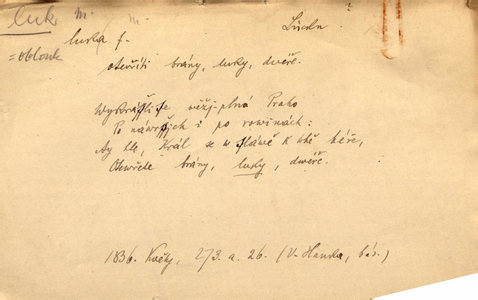 luk m.
= oblouk
luka f.
otevříti brány, luky, dvéře.
věži-plná Praho
Po náwršjch i po rowinách:
Ay tle, Král se w sláwě k tobě béře,
Otewřete brány, luky, dwéře.
1836. Květy, 273. a. 26. (V. Hanka, bás.)